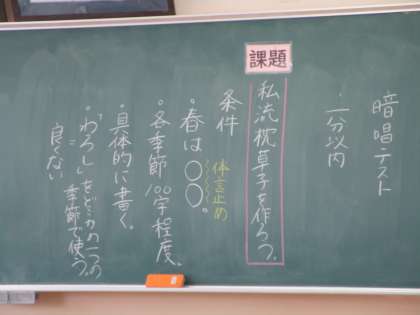 暗唱テスト
・一分以内
課題
私流枕草子を作ろう。
条件
・春は○○。
体言止め
・各季節100字程度。
・具体的に書く。
・"わろし"をどこかの一つの季節で使う。
=良くない